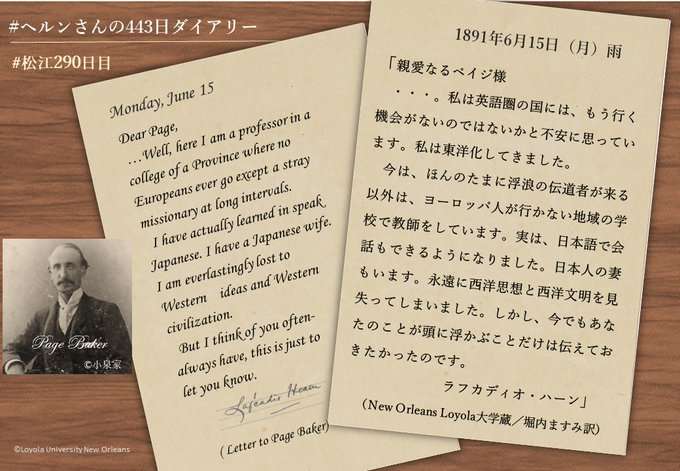 #ヘルンさんの443日ダイアリー
#松江290日目
Monday, June 15
Dear Page,
...Well, here I am a professor in a
college of a Province where no
Europeans ever go except a stray
missionary at long intervals.
I have actually learned in speak
Japanese. I have a Japanese wife.
I am everlastingly lost to
Western ideas and Western
civilization.
But I think of you often-
always have, this is just to
let you know.
Lafcadio Hearn
( Letter to Page Baker)
1891年6月15日（月）雨
「親愛なるベイジ様
・・・。私は英語圏の国には、もう行く
機会がないのではないかと不安に思ってい
ます。私は東洋化してきました。
今は、ほんのたまに浮浪の伝道者が来る
以外は、ヨーロッパ人が行かない地域の学
校で教師をしています。実は、日本語で会
話もできるようになりました。日本人の妻
もいます。永遠に西洋思想と西洋文明を見
失ってしまいました。しかし、今でもあな
たのことが頭に浮かぶことだけは伝えてお
きたかったのです。
ラフカディオ・ハーン」
（New Orleans Loyola大学蔵／堀内ますみ訳）
Page Baker
©小泉家
©Loyola University New Orleans